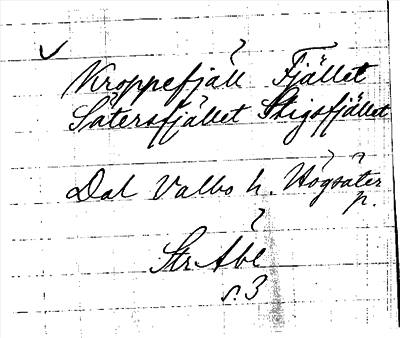 Kroppefjäll Fjället
Sätersfjället Stigsfjället
Dal Valbo h. Högsäter
p.
Str Åbl
s. 3